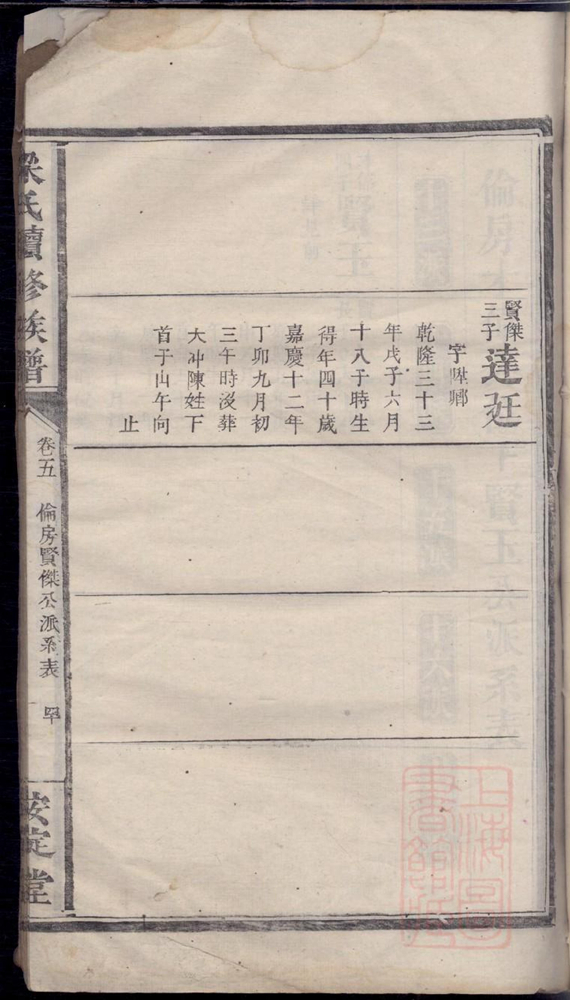 賢傑三子達廷
字陞鄉
乾隆三十三
年戊子六月
十八子時生
得年四十歲
嘉慶十二年
丁卯九月初
三午時歿葬
大冲陳姓下
首子山午向
止
梁氏續修族譜
卷五
倫房賢傑公派系表
安定堂
上海圖書館藏